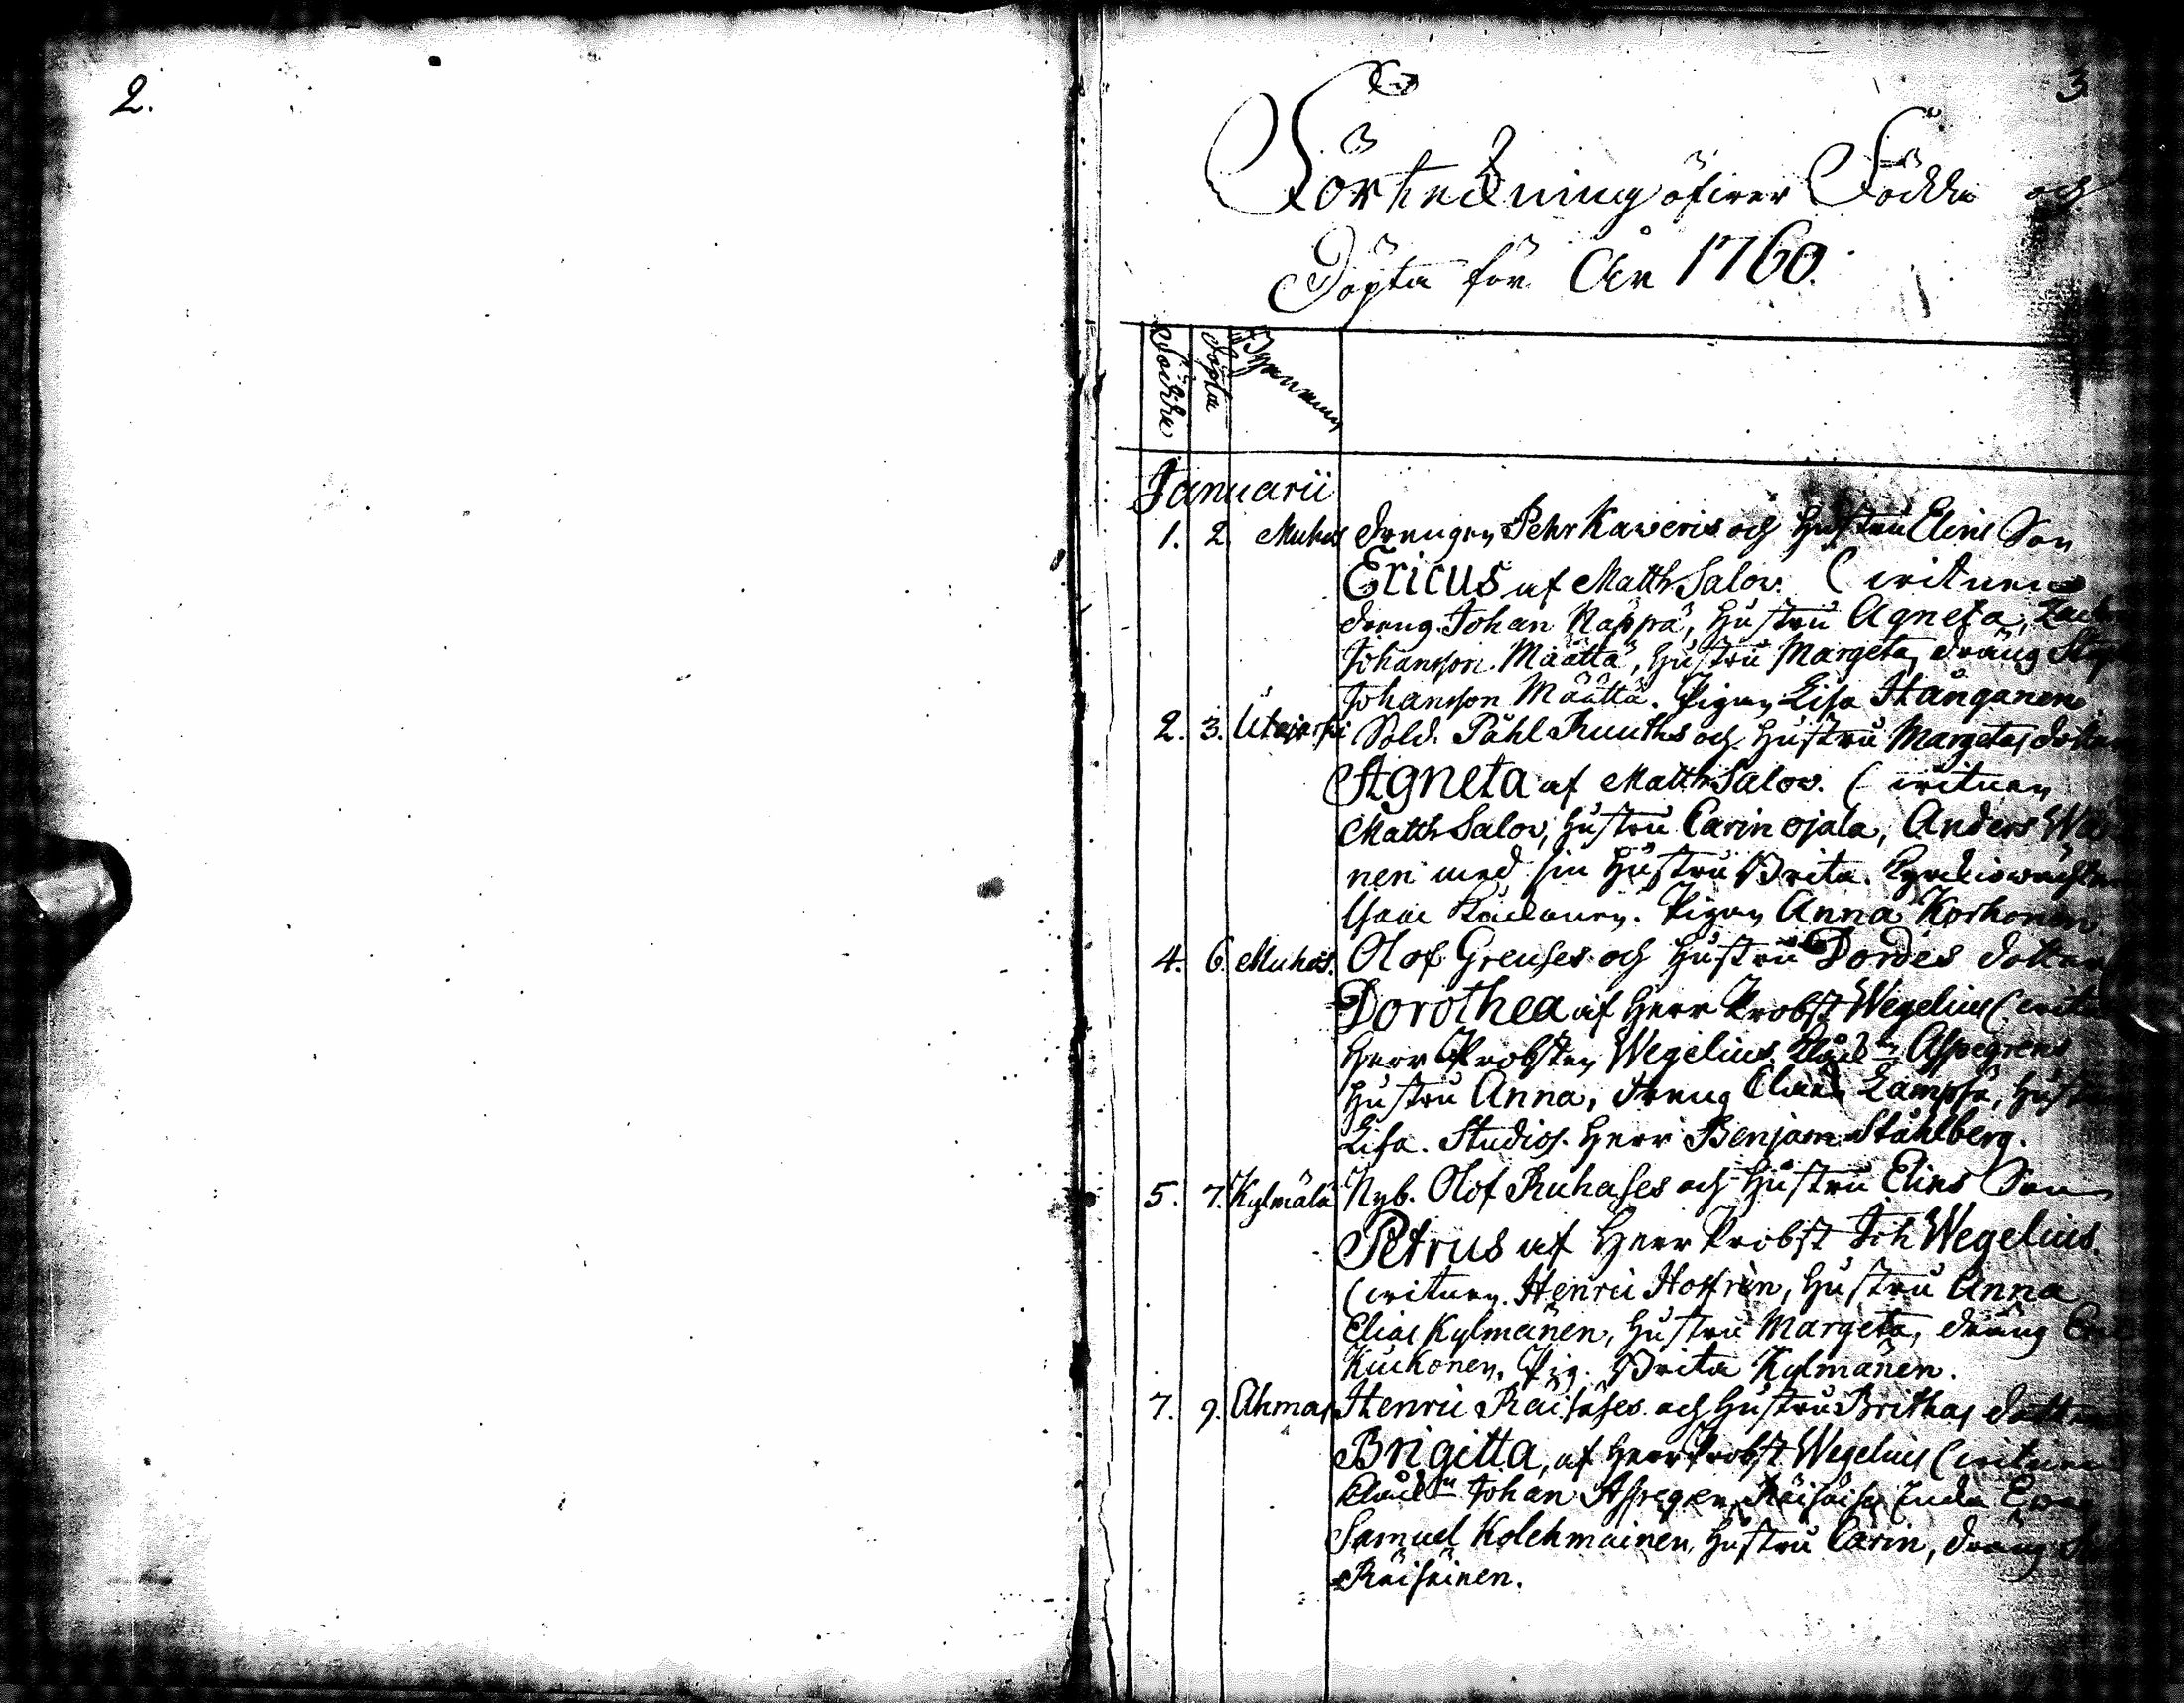 2.
3
Förteckning öfwer Födde och
Döpta för År 1760.
Födde
Döpta
Bynamn
Januarii
1. 2. Muhos Drengen Pehr Kaweris och hustru Elins Son
Ericus af Matth Salov. (witnen
dreng. Johan Räppä, hustru Agneta,
Johansson Määttä, hustru Margeta, dräng
Johansson Määttä. Pigan Lisa Stånganen
2. 3. Utajerfwi Sold. Påhl Ruuths och hustru Margetas dotter
Agneta af Matth Salov. (witnen
Matth Salov, hustru Carin Ojala, Anders
nen med sin hustru Brita. Kyrkiowächtar
Isaac Pigan Anna Korhonen.
4. 6. Muhos. Olof Greuses och hustru Dordes dotter
Dorothea af Herr Probst Wegelius (witn
Herr Probsten Wegelius. Klåck:n Aspegrens
hustru Anna, dreng Lämpsä, hustru
Lisa. Studios. Herr Benjam Ståhlberg.
5. 7. Kylmälä Nyb. Olof Ruhases och hustru Elins Son
Petrus af Herr Probst Joh Wegelius.
(witnen. Henric Hoffrén, hustru Anna
Elias Kylmänen, hustru Margeta, dräng
Kuckonen, Pig. Brita Kylmänen.
7. 9. Ahmas Henric Räisäses och hustru Brithas dotter
Brigitta, af Herr Probst Wegelius (witnen
Klåck:n Johan Aspegren, Enka Ewa
Samuel Kolehmainen, hustru Carin, dräng
Räisäinen.